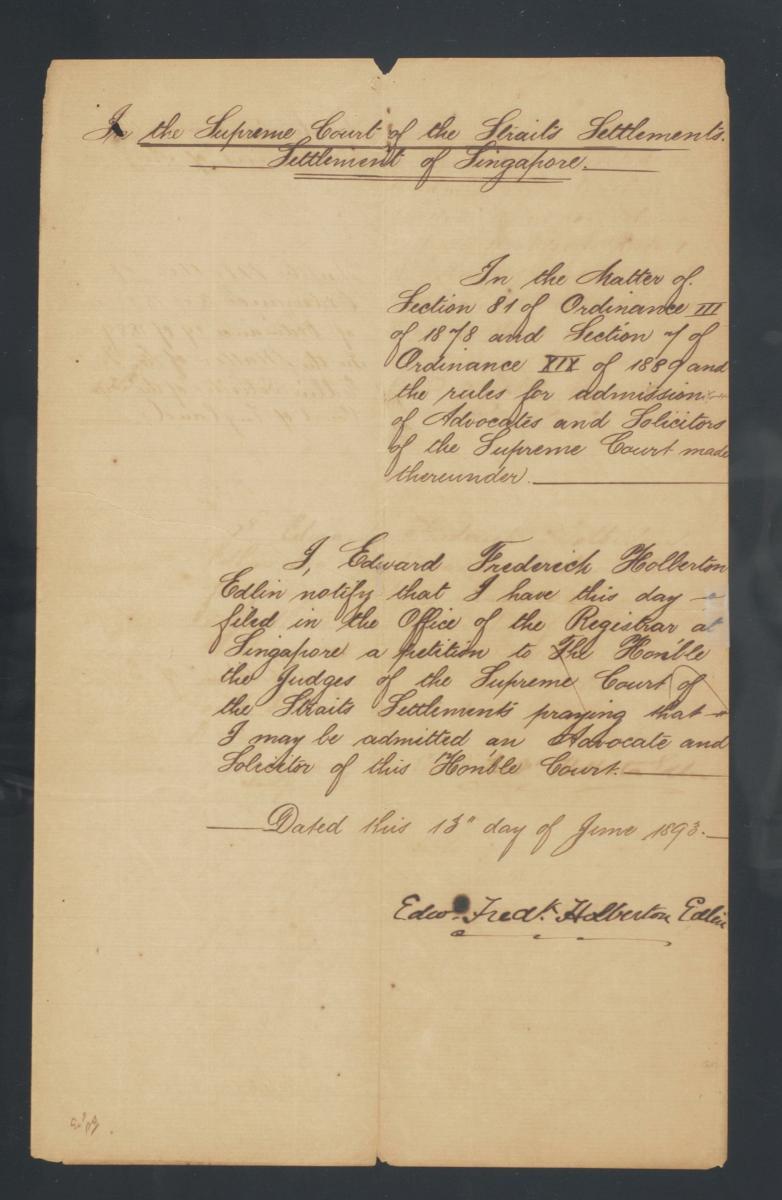 In the Supreme Court of the Straits Settlements.
Settlement of Singapore.
In the Matter of
Section 81 of Ordinance III
of 1878 and Section 7 of
Ordinance XIX of 1889 and
the rules for admission
of Advocates and Solicitors
of the Supreme Court made
thereunder.
I, Edward Frederick Holberton
Edlin notify that I have this day
filed in the Office of the Registrar at
Singapore a petition to The Hon'ble
the Judges of the Supreme Court of
the Straits Settlements praying that
I may be admitted an Advocate and
Solicitor of this Hon'ble Court.
Dated this 13" day of June 1893.
Edwd. Fredk. Holberton Edlin